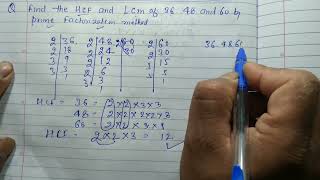 Q Find the HCF and LCM of 36 48 and 60 by
prime factorization method
2 36 2 48 2 60 2 60 36 48 60
2 18 2 24 30 2 30
3 9 2 12 3 15
3 3 2 6 5 5
1 3 3 1
1
HCF = 36 = 2×2×3×3
48 = 2×2×2×2×3
60 = 2×2×3×5
HCF = 2×2×3 = 12